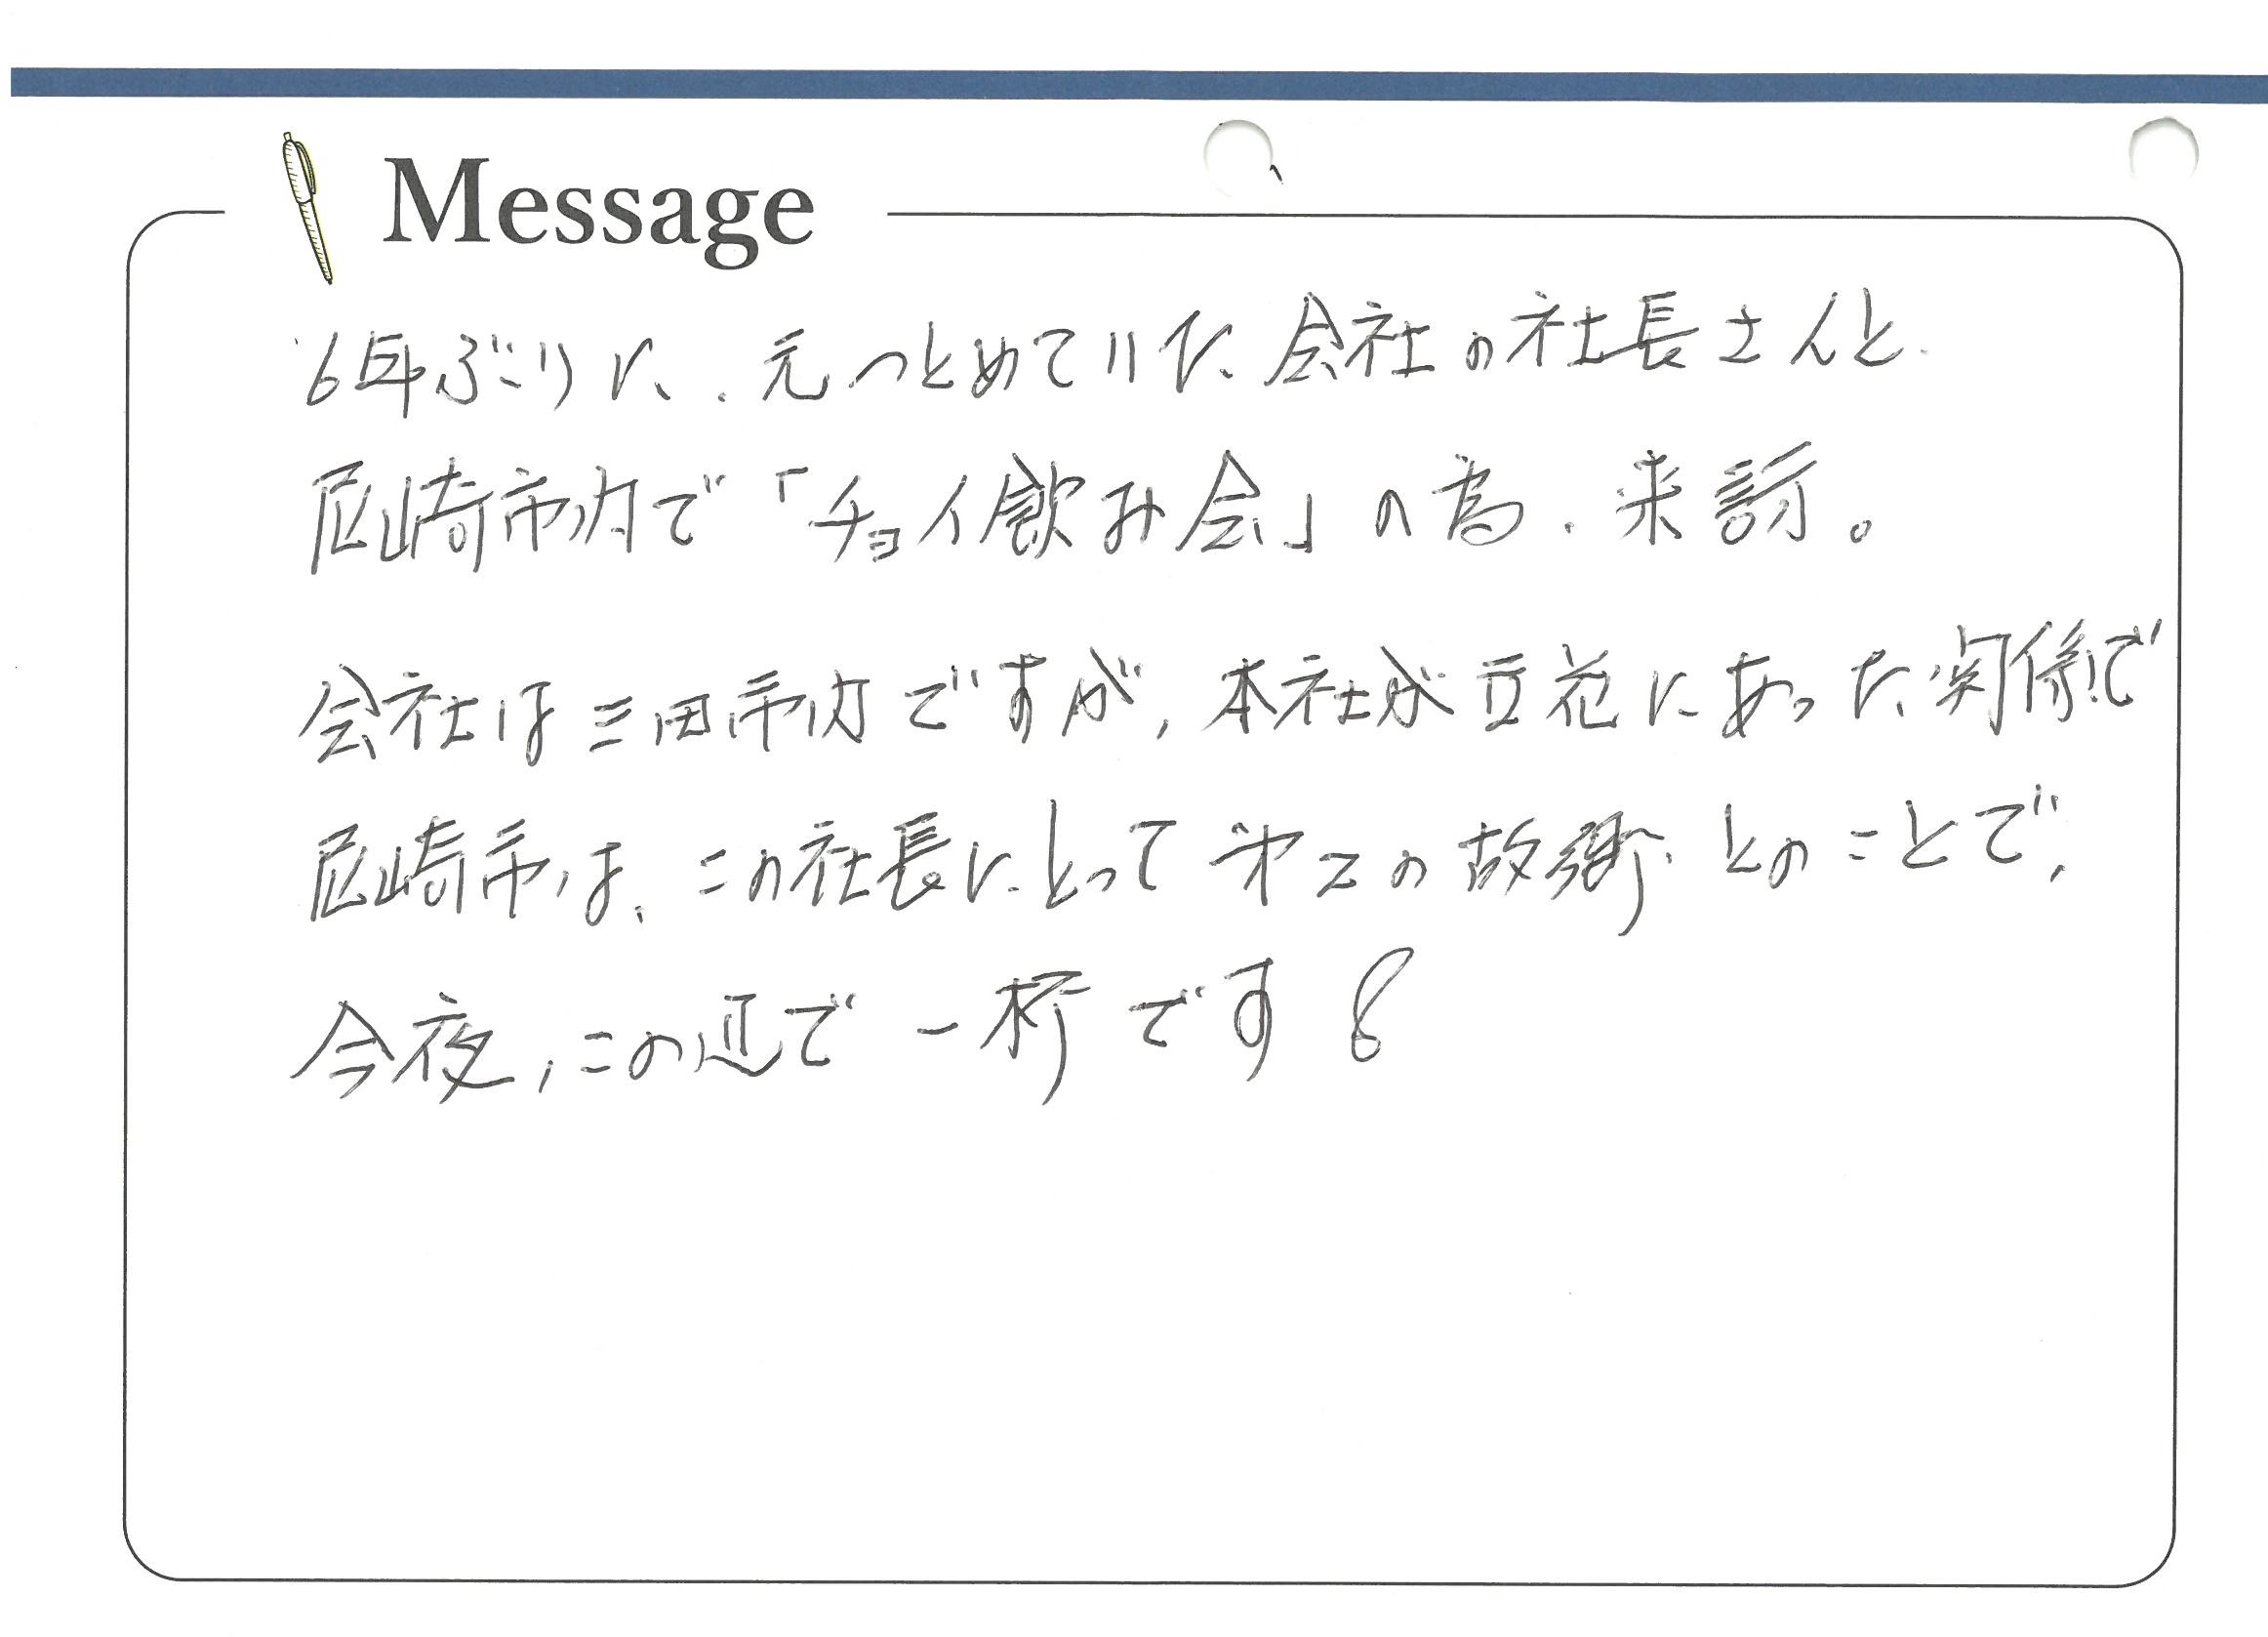 Message
6年ぶりに、元つとめていた会社の社長さんと
尼崎市内で「チョイ飲み会」の為、来訪。
会社は三田市内ですが、本社が立花にあった関係で
尼崎市は、この社長にとって第二の故郷とのことで、
今夜、この辺で一杯です!